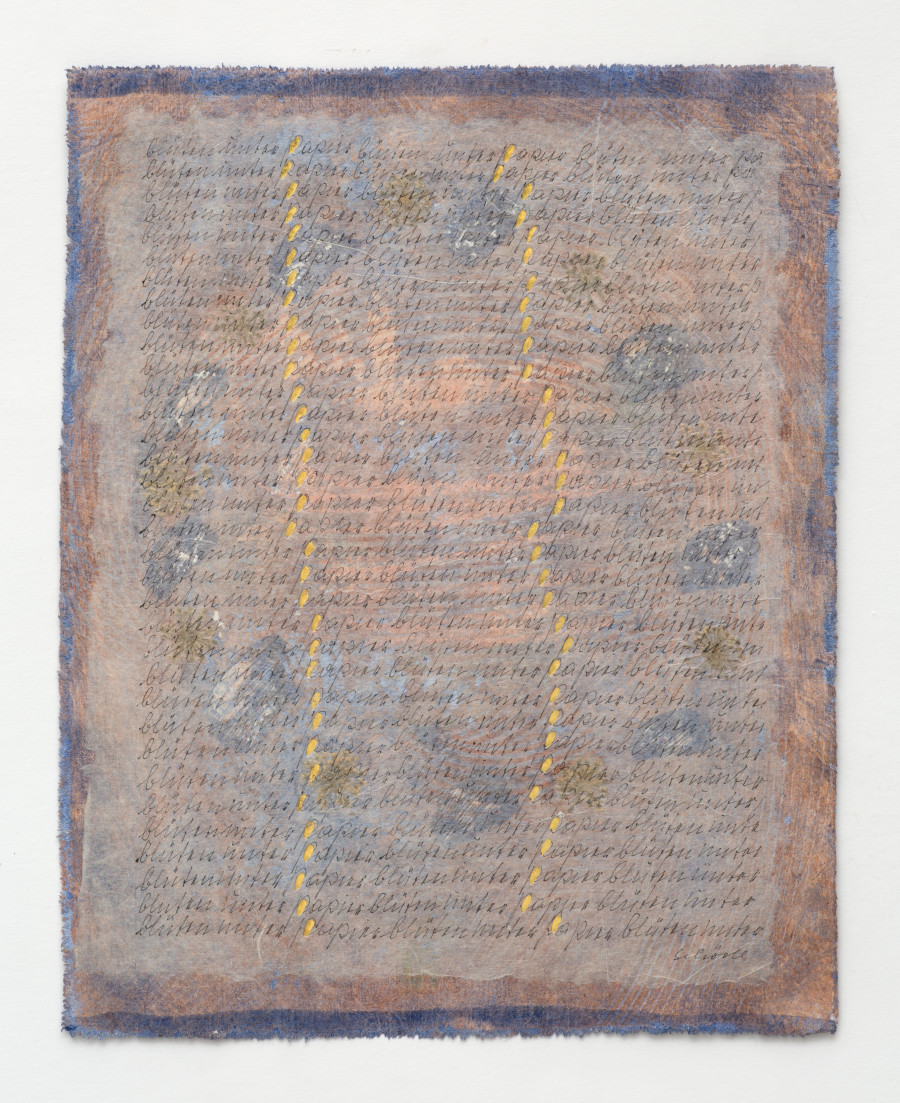 blüten unter papier blüten unter papier blüten unter pa
blüten unter papier blüten unter papier blüten unter pa
blüten unter papier blüten unter papier blüten unter
blüten unter papier blüten unter papier blüten unter
blüten unter papier blüten unter papier blüten unter
blüten unter papier blüten unter papier blüten unter
blüten unter papier blüten unter papier blüten unter p
blüten unter papier blüten unter papier blüten unter
blüten unter papier blüten unter papier blüten unter p
blüten unter papier blüten unter papier blüten unter
blüten unter papier blüten unter papier blüten unter
blüten unter papier blüten unter papier blüten unter
blüten unter papier blüten unter papier blüten unte
blüten unter papier blüten unter papier blüten unte
blüten unter papier blüten unter papier blüten unt
blüten unter papier blüten unter papier blüten un
blüten unter papier blüten unter papier blüten unt
blüten unter papier blüten unter papier blüten unter
blüten unter papier blüten unter papier blüten unter
blüten unter papier blüten unter papier blüten unter
blüten unter papier blüten unter papier blüten unte
blüten unter papier blüten unter papier blüten unte
blüten unter papier blüten unter papier blüten un
blüten unter papier blüten unter papier blüten unter
blüten unter papier blüten unter papier blüten unter
blüten unter papier blüten unter papier blüten unter
blüten unter papier blüten unter papier blüten unter
blüten unter papier blüten unter papier blüten unter
blüten unter papier blüten unter papier blüten unter
blüten unter papier blüten unter papier blüten unte
blüten unter papier blüten unter papier blüten unter
blüten unter papier blüten unter papier blüten unter
blüten unter papier blüten unter papier blüten unter
blüten unter papier blüten unter papier blüten unter